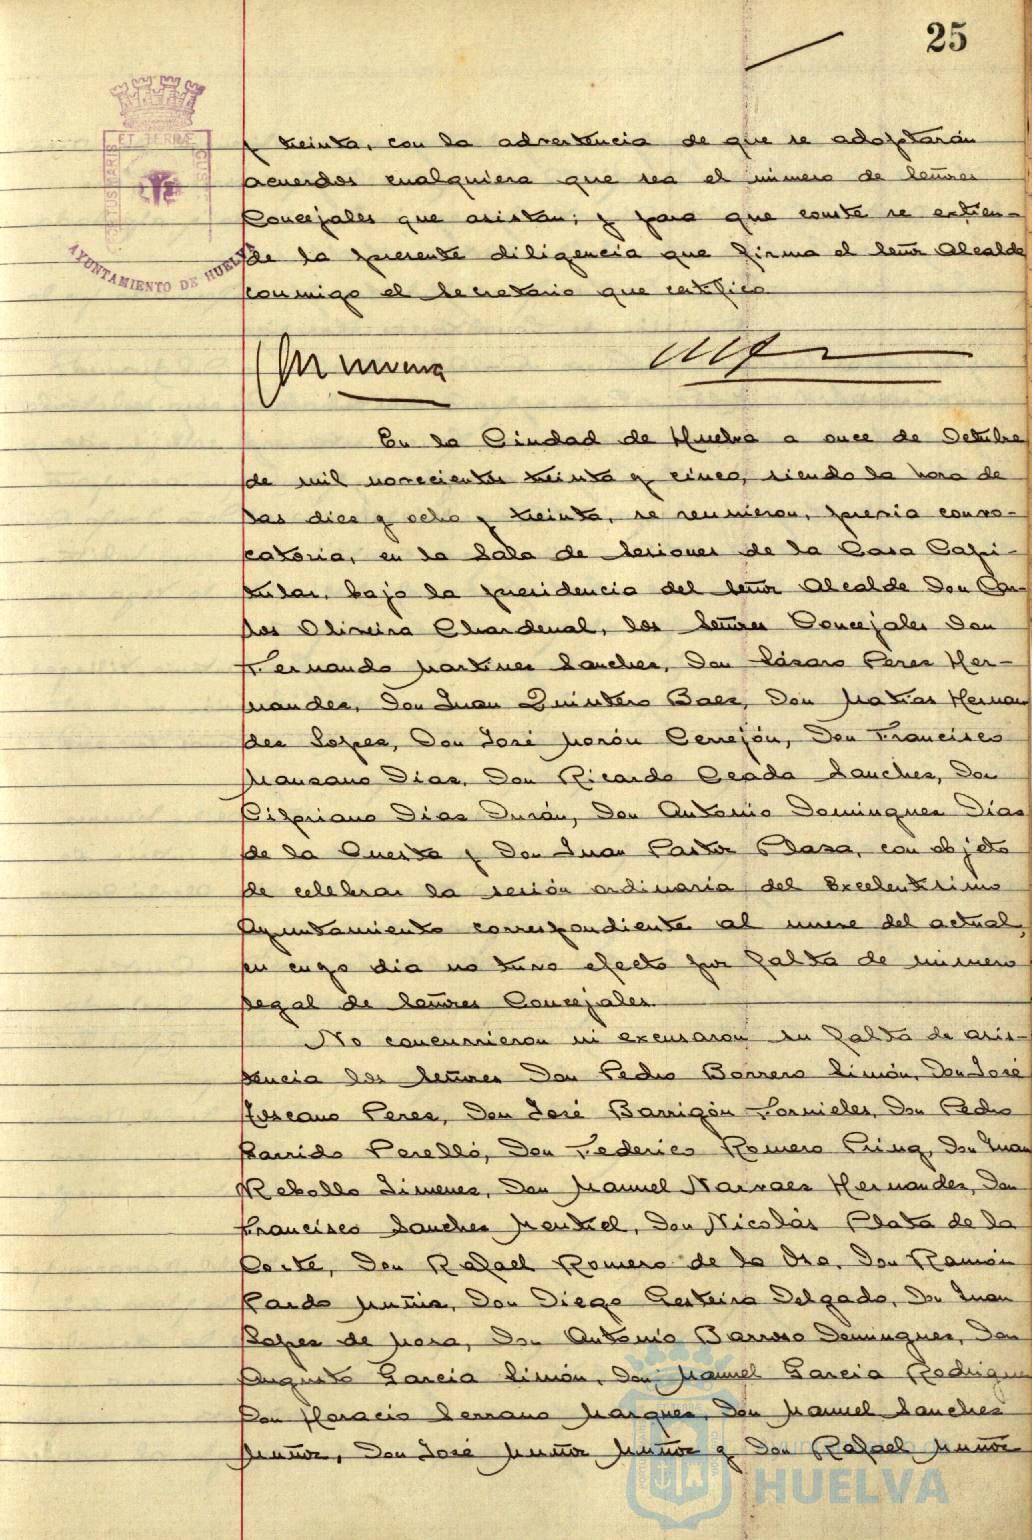 25
ET TERRÆ
AYUNTAMIENTO DE HUELVA
y treinta, con la advertencia de que se adoptarán
acuerdos cualquiera que sea el número de Señores
Concejales que asistan; y para que conste se extien-
de la presente diligencia que firma el Señor Alcalde
conmigo el Secretario que certifico
En la Ciudad de Huelva a once de Octubre
de mil novecientos treinta y cinco, siendo la hora de
las diez y ocho y treinta, se reunieron, previa convo-
catoria, en la Sala de Sesiones de la Casa Capi-
tular, bajo la presidencia del Señor Alcalde Don Car-
los Oliveira Chardenal, los Señores Concejales Don
Fernando Martinez Sanchez, Don Lázaro Perez Her-
nandez, Don Juan Quintero Baez, Don Matías Hernan
dez Lopez, Don José Morón Cerrejón, Don Francisco
Manzano Díaz, Don Ricardo Ceada Sanchez, Don
Cipriano Díaz Durán, Don Antonio Dominguez Díaz
de la Cuesta y Don Juan Pastor Plaza, con objeto
de celebrar la sesión ordinaria del Excelentisimo
Ayuntamiento correspondiente al nueve del actual,
en cuyo día no tuvo efecto por falta de número
legal de Señores Concejales.
No concurrieron ni excusaron su falta de asis-
tencia los Señores Don Pedro Borrero Limón, Don José
Toscano Perez, Don José Barrigón Fornieles, Don Pedro
Garrido Perelló, Don Federico Romero Pring, Don Juan
Rebollo Jimenez, Don Manuel Narvaez Hernandez, Don
Francisco Sanchez Montiel, Don Nicolás Plata de la
Corte, Don Rafael Romero de la Osa, Don Ramón
Pardo Muñiz, Don Diego Gesteira Delgado, Don Juan
Lopez de Mora, Don Antonio Barroso Dominguez, Don
Augusto Garcia Limón, Don Manuel Garcia Rodriguez
Don Horacio Serrano Marquez, Don Manuel Sanchez
Muñoz, Don José Muñoz Muñoz y Don Rafael Muñoz
HUELVA